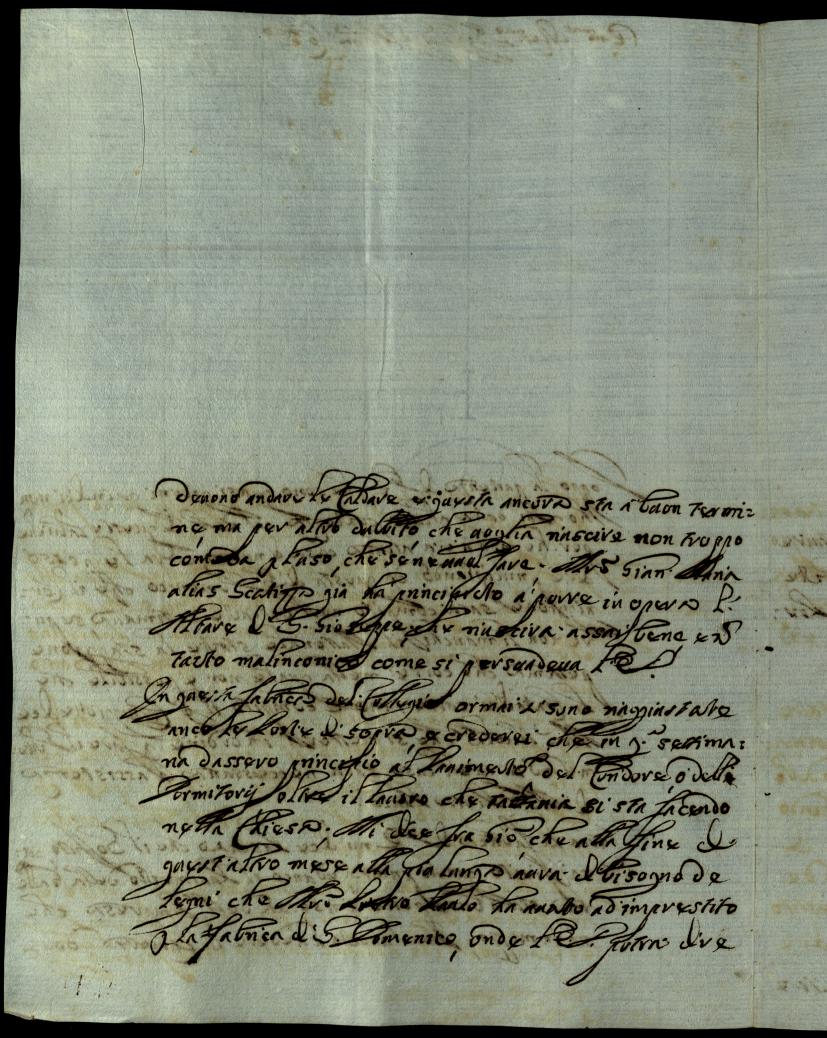 deuono andare le Caldare e questa ancora sta a buon termi=
ne ma per altro dubito che voglia riuscire non troppo
cómoda p l'uso, che se ne deue fare. Mrõ Gian Maria
alias già ha principiato a porre in opera l'
Altare di S. Gioseppe, che riuscira assai bene e nõ
tãto malinconico come si persuadeua V.P.
In questa fabrica del Collegio ormai si sono aggiustate
anco le Porte di sopra e crederei che in q.ᵃ settima=
na dassero principio al del Coridore o delli
Dormitorij oltre il lauoro che tuttauia si sta facendo
nella Chiesa. Mi dice fra Gio che alla fine di
quest'altro mese alla piu lunga aura di bisogno de
legni che Mrõ Pietro Paulo ha auuto ad imprestito
p la fabrica di S. Domenico, onde V.P. potra dire